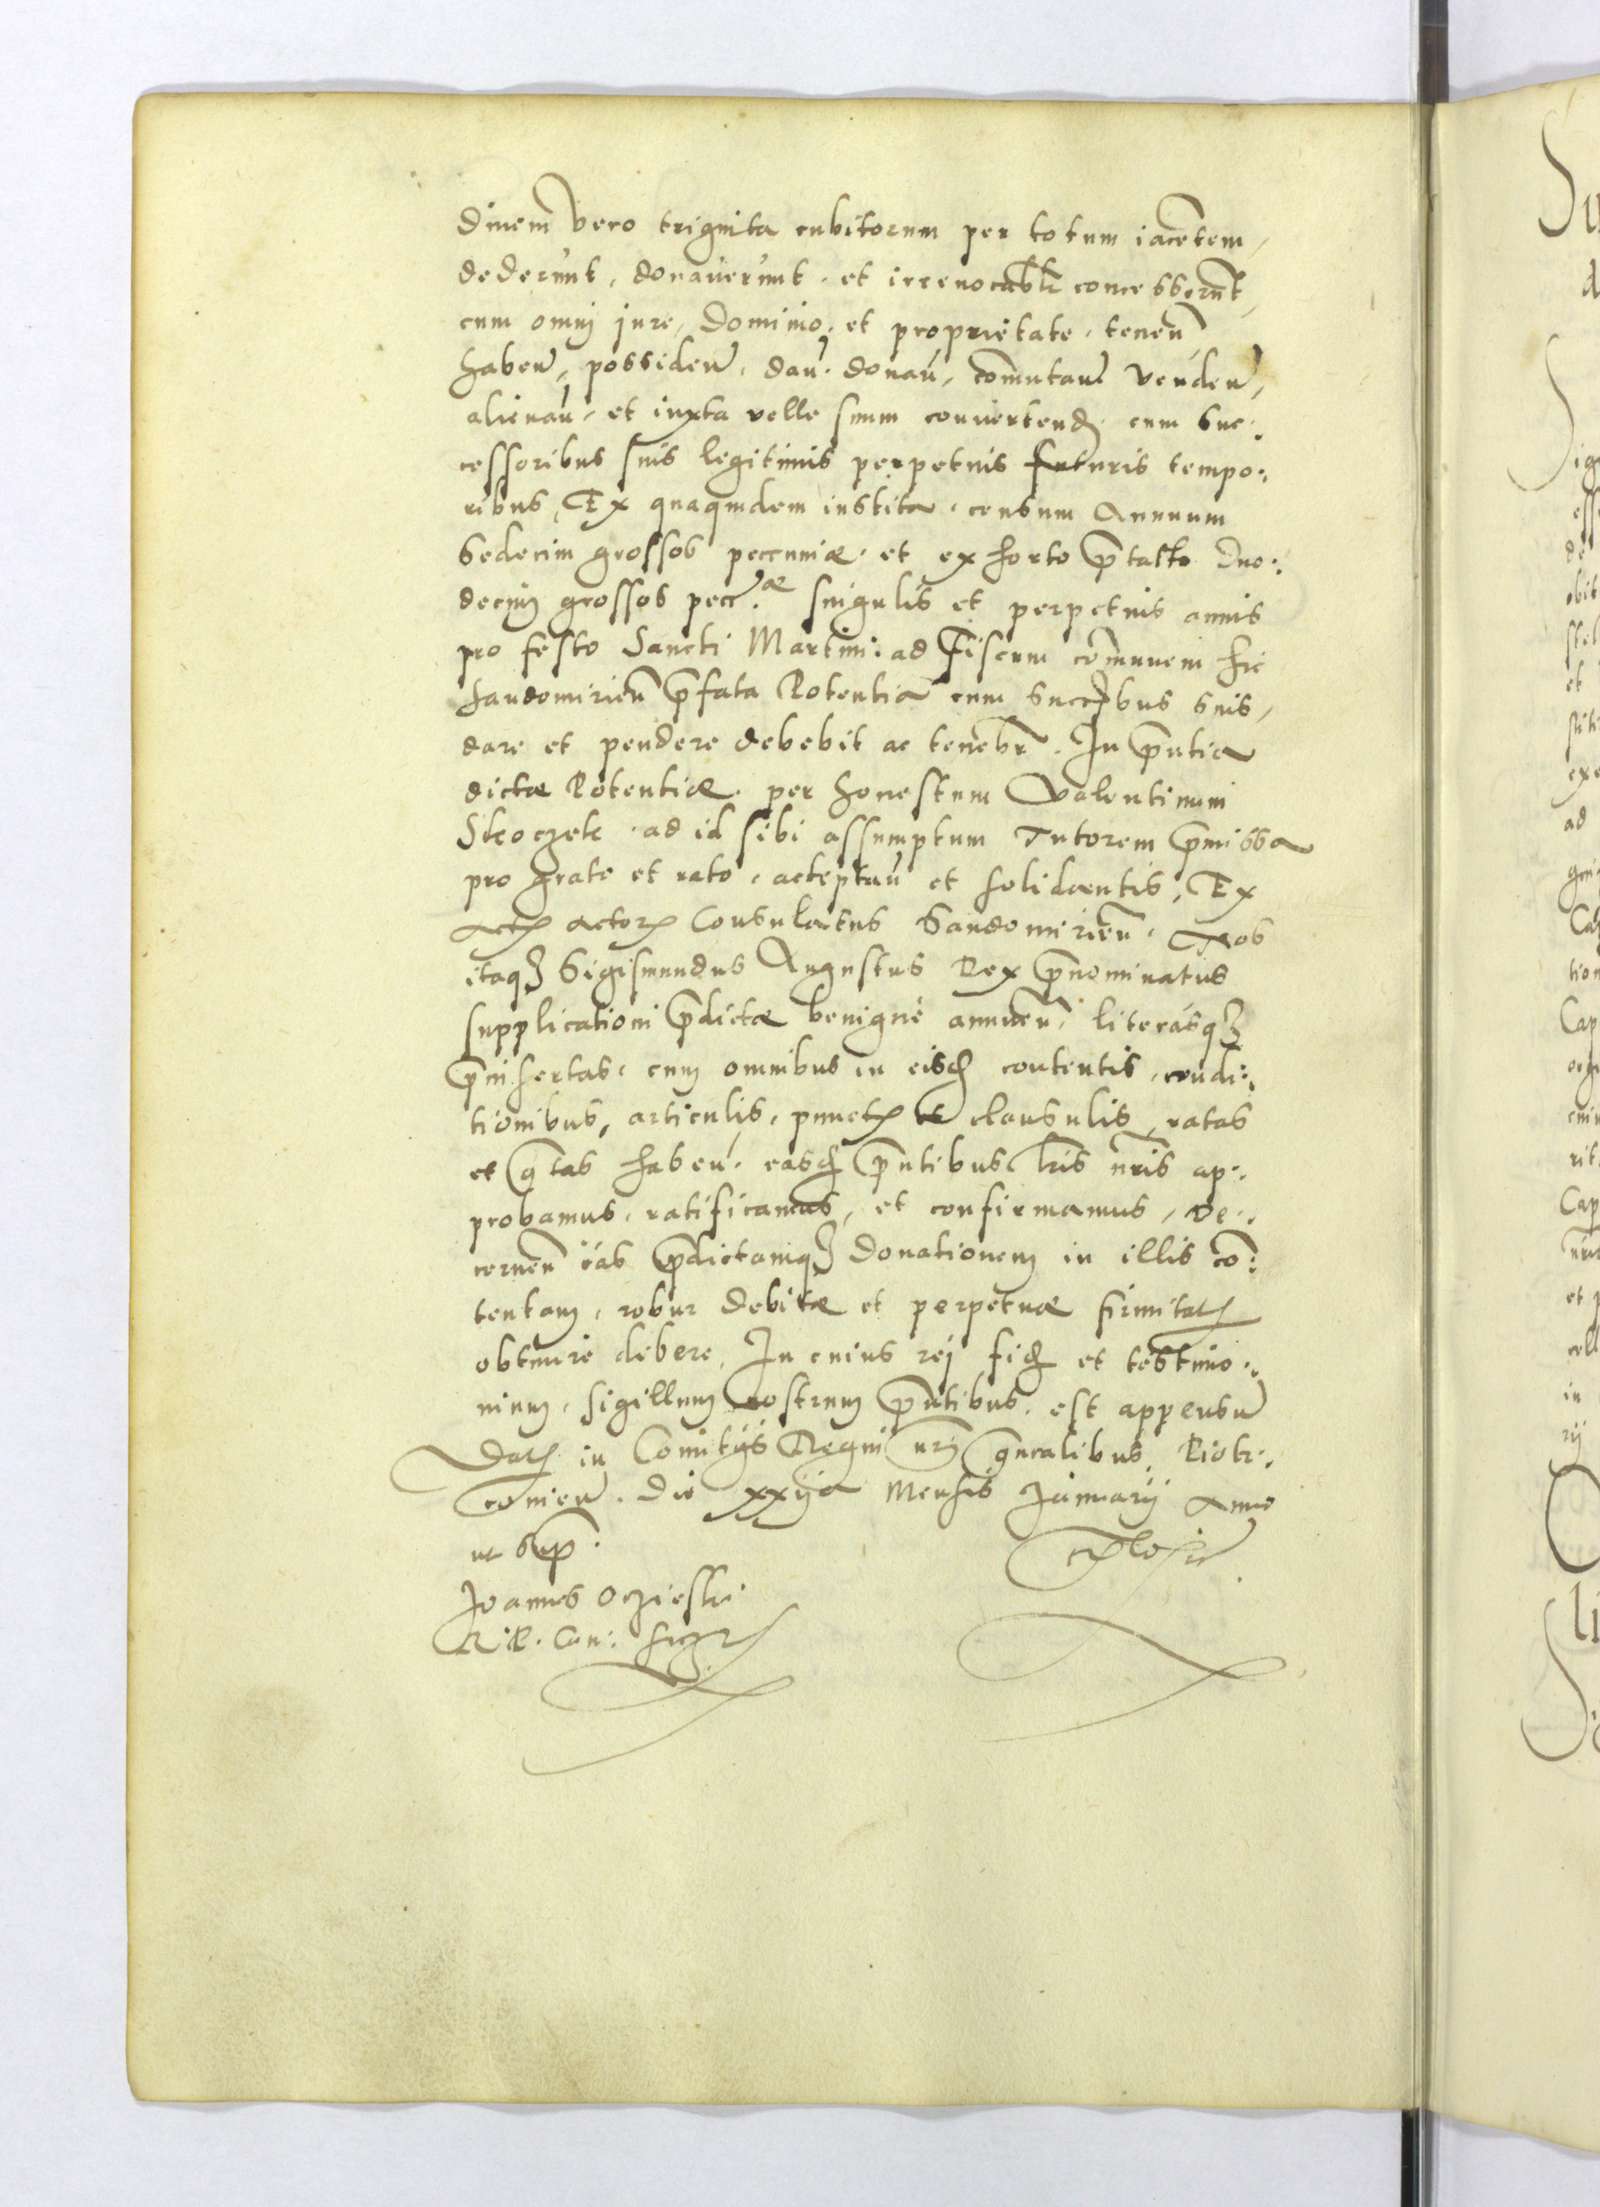 dinem vero triginta cubitorum per totum iacẽtem,
dederunt, donaverunt, et irrevocabłr concesserũt,
cum omnj jure, Dominio, et proprietate, teneñ
habeñ, possideñ, dañ, donañ, com̃utañ vendeñ,
alienañ, et iuxta velle suum convertend, cum suc:
cessoribus suis legitimis perpetuis futuris tempo:
ribus, Ex quaquidem instita, censum Annuum
Sedecim grossos peccuniæ, et ex horto p̃tacto duo:
decim grossos pecc:æ singulis et perpetuis annis
pro festo Sancti Martini ad Fiscum com̃unem hic
Sandomirieñ p̃fata Potentia cum succ̃bus suis,
dare et pendere debebit ac tenebr̃. In p̃ntia
dictæ Potentiæ, per honestum Valentinum
Skoczek, ad id sibi assumptum Tutorem p̃missa
pro grate et rato, acceptañ et solidantis, Ex
Actis actor Consulatus Sandomirieñ. Nos
itaq3 Sigismundus Augustus Rex p̃nominatus
supplicationi p̃dictæ benigne annueñ, literasq3
p̃insertas, cum omnibus in eisd contentis, condi:
tionibus, articulis, punctis et clausulis, ratas
et g̃tas habeñ, easd p̃ntibus l̃ris ñris ap:
probamus, ratificamus, et confirmamus, De:
cerneñ eas p̃dictamq3 Donationem in illis cõ:
tentam, robur debitæ et perpetuæ firmitat
obtinere debere, In cuius rej fid et testimo:
nium, sigillum nostrum p̃ntibus, est appensũ
Dat in Comitijs Regni ñrj g̃nralibus, Piotr:
coviem̃. Die xxija Mensis Januarij Anno
ut sup̃.
Joannes Oczieski
R. P. Can: